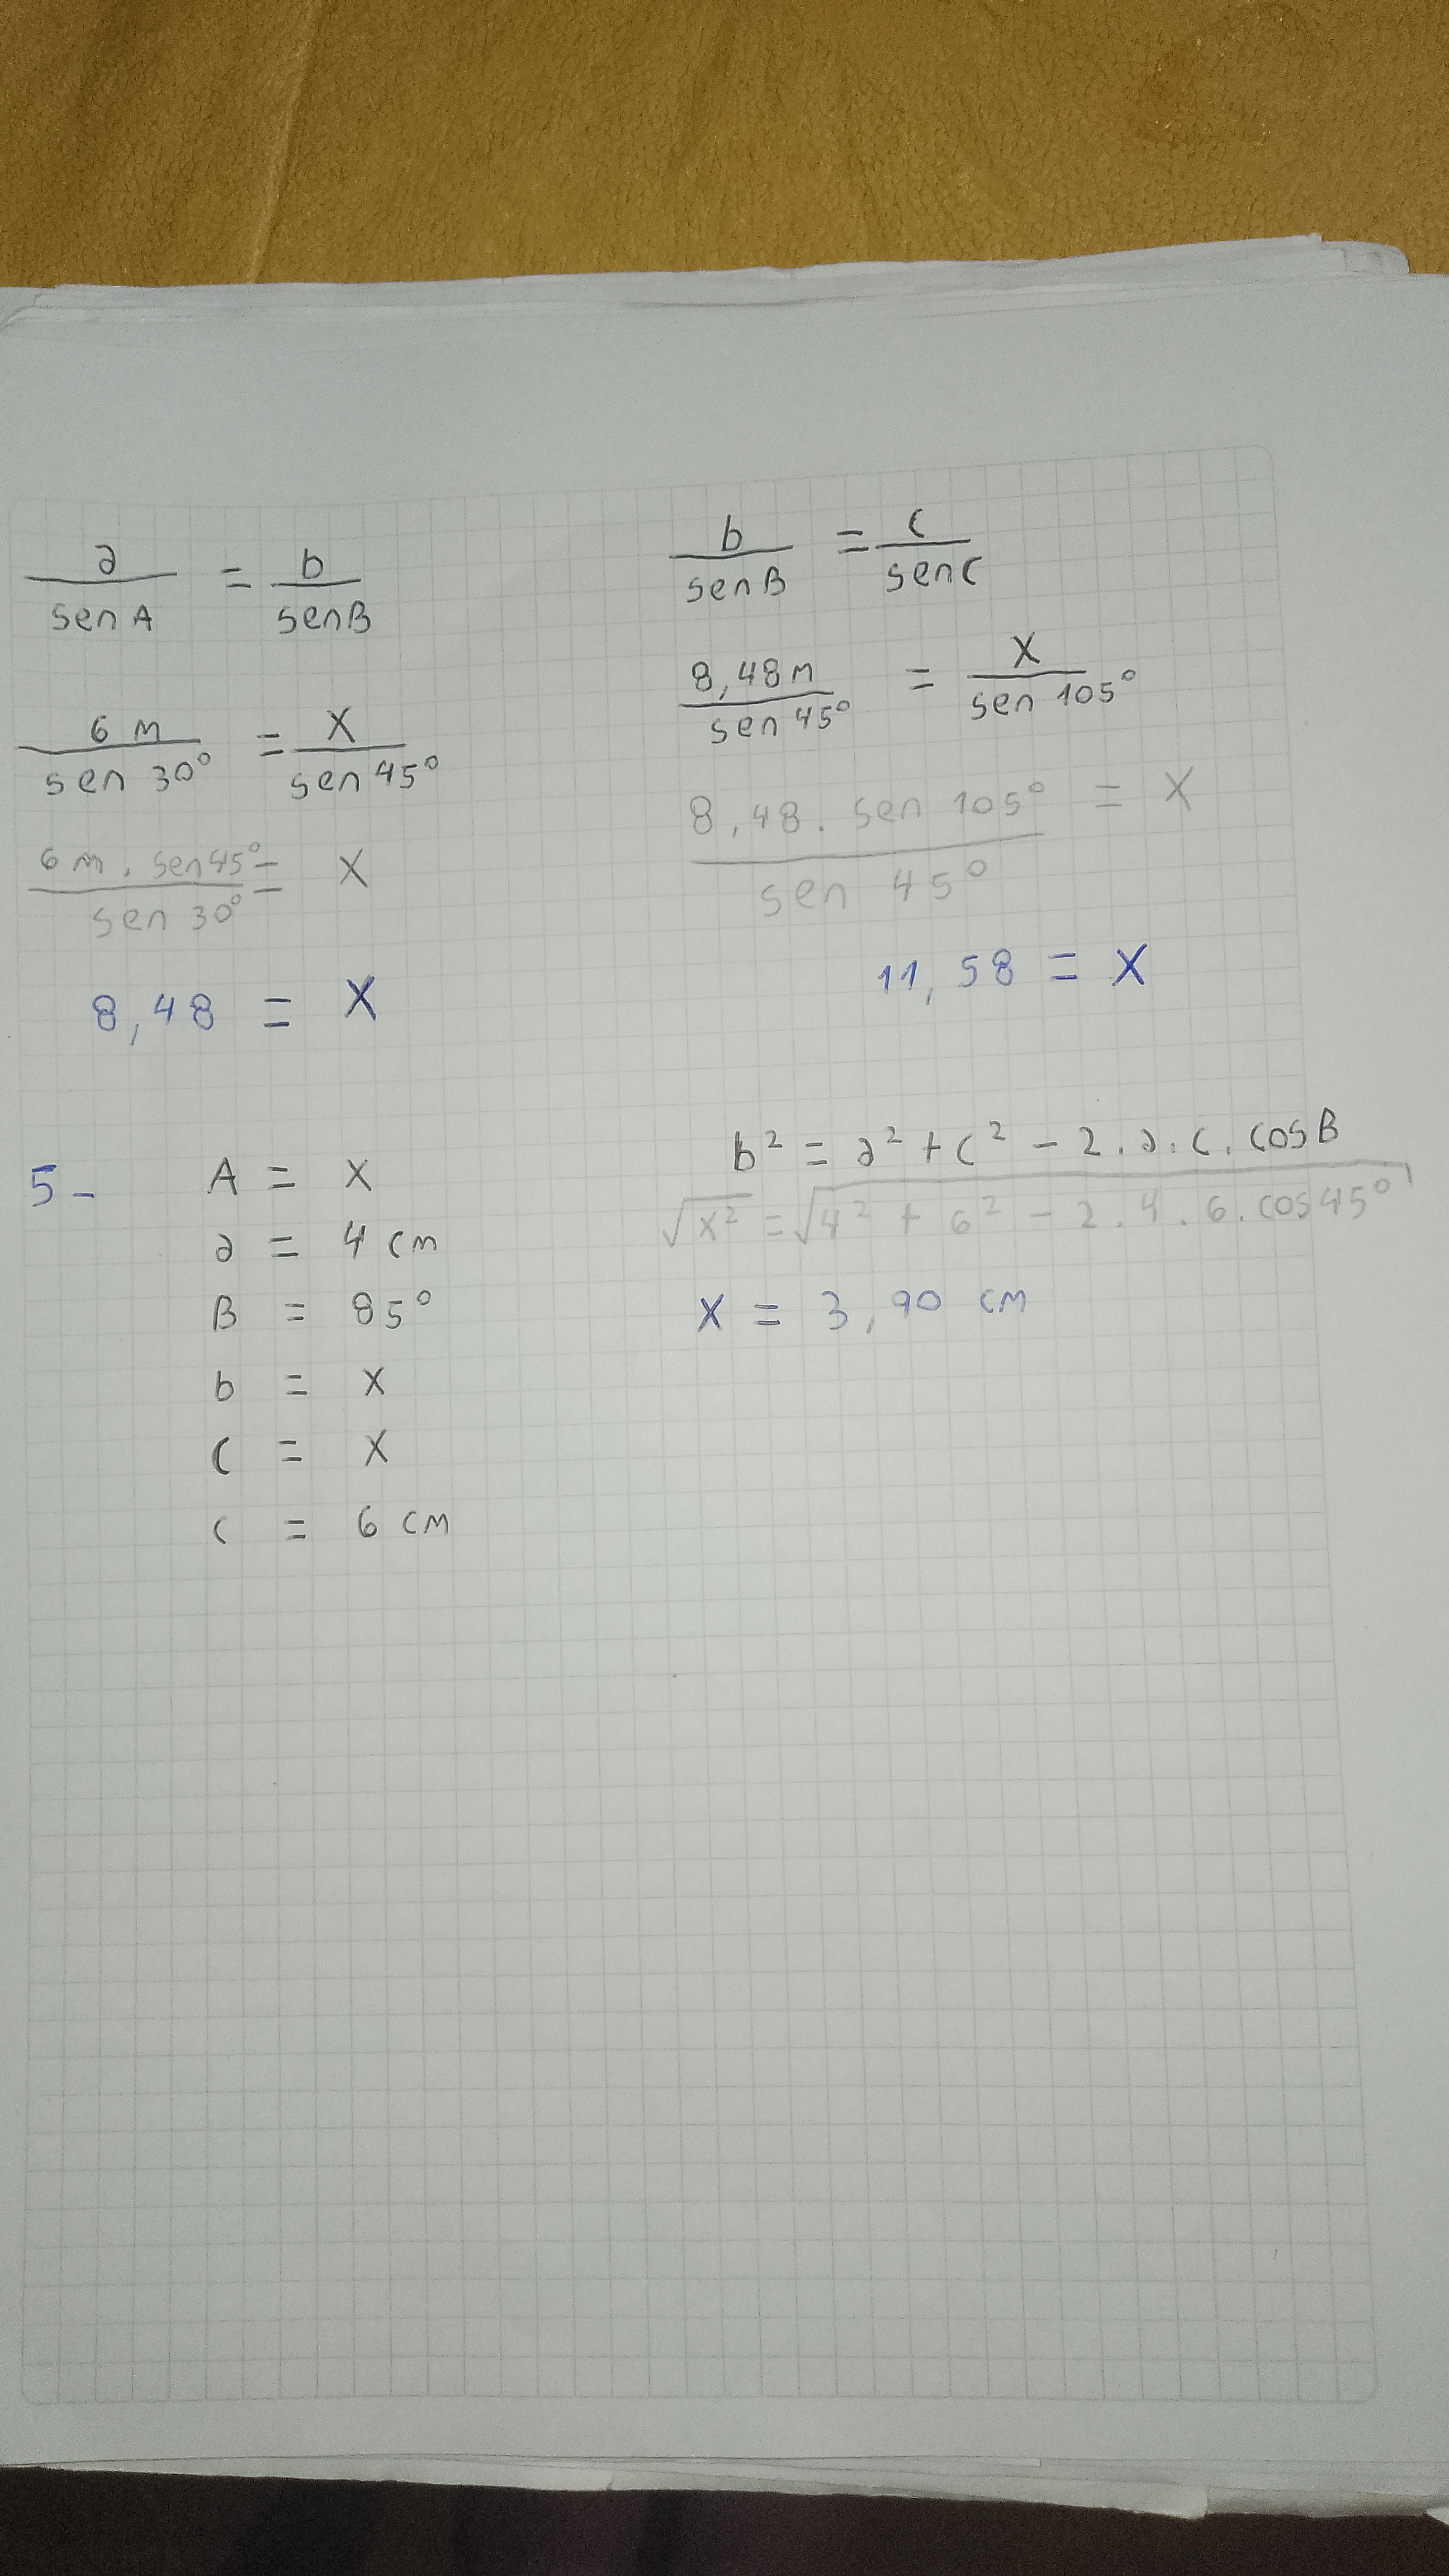 a/sen A = b/sen B
6 m/sen 30° = X/sen 45°
6 m . sen 45°/sen 30° = X
8,48 = X
b/sen B = c/sen C
8,48 m/sen 45° = X/sen 105°
8,48 . sen 105°/sen 45° = X
11,58 = X
5-
A = X
a = 4 cm
B = 85°
b = X
C = X
c = 6 cm
b² = a² + c² - 2 . a . c . cos B
√x² = √4² + 6² - 2 . 4 . 6 . cos 45°
X = 3,90 cm